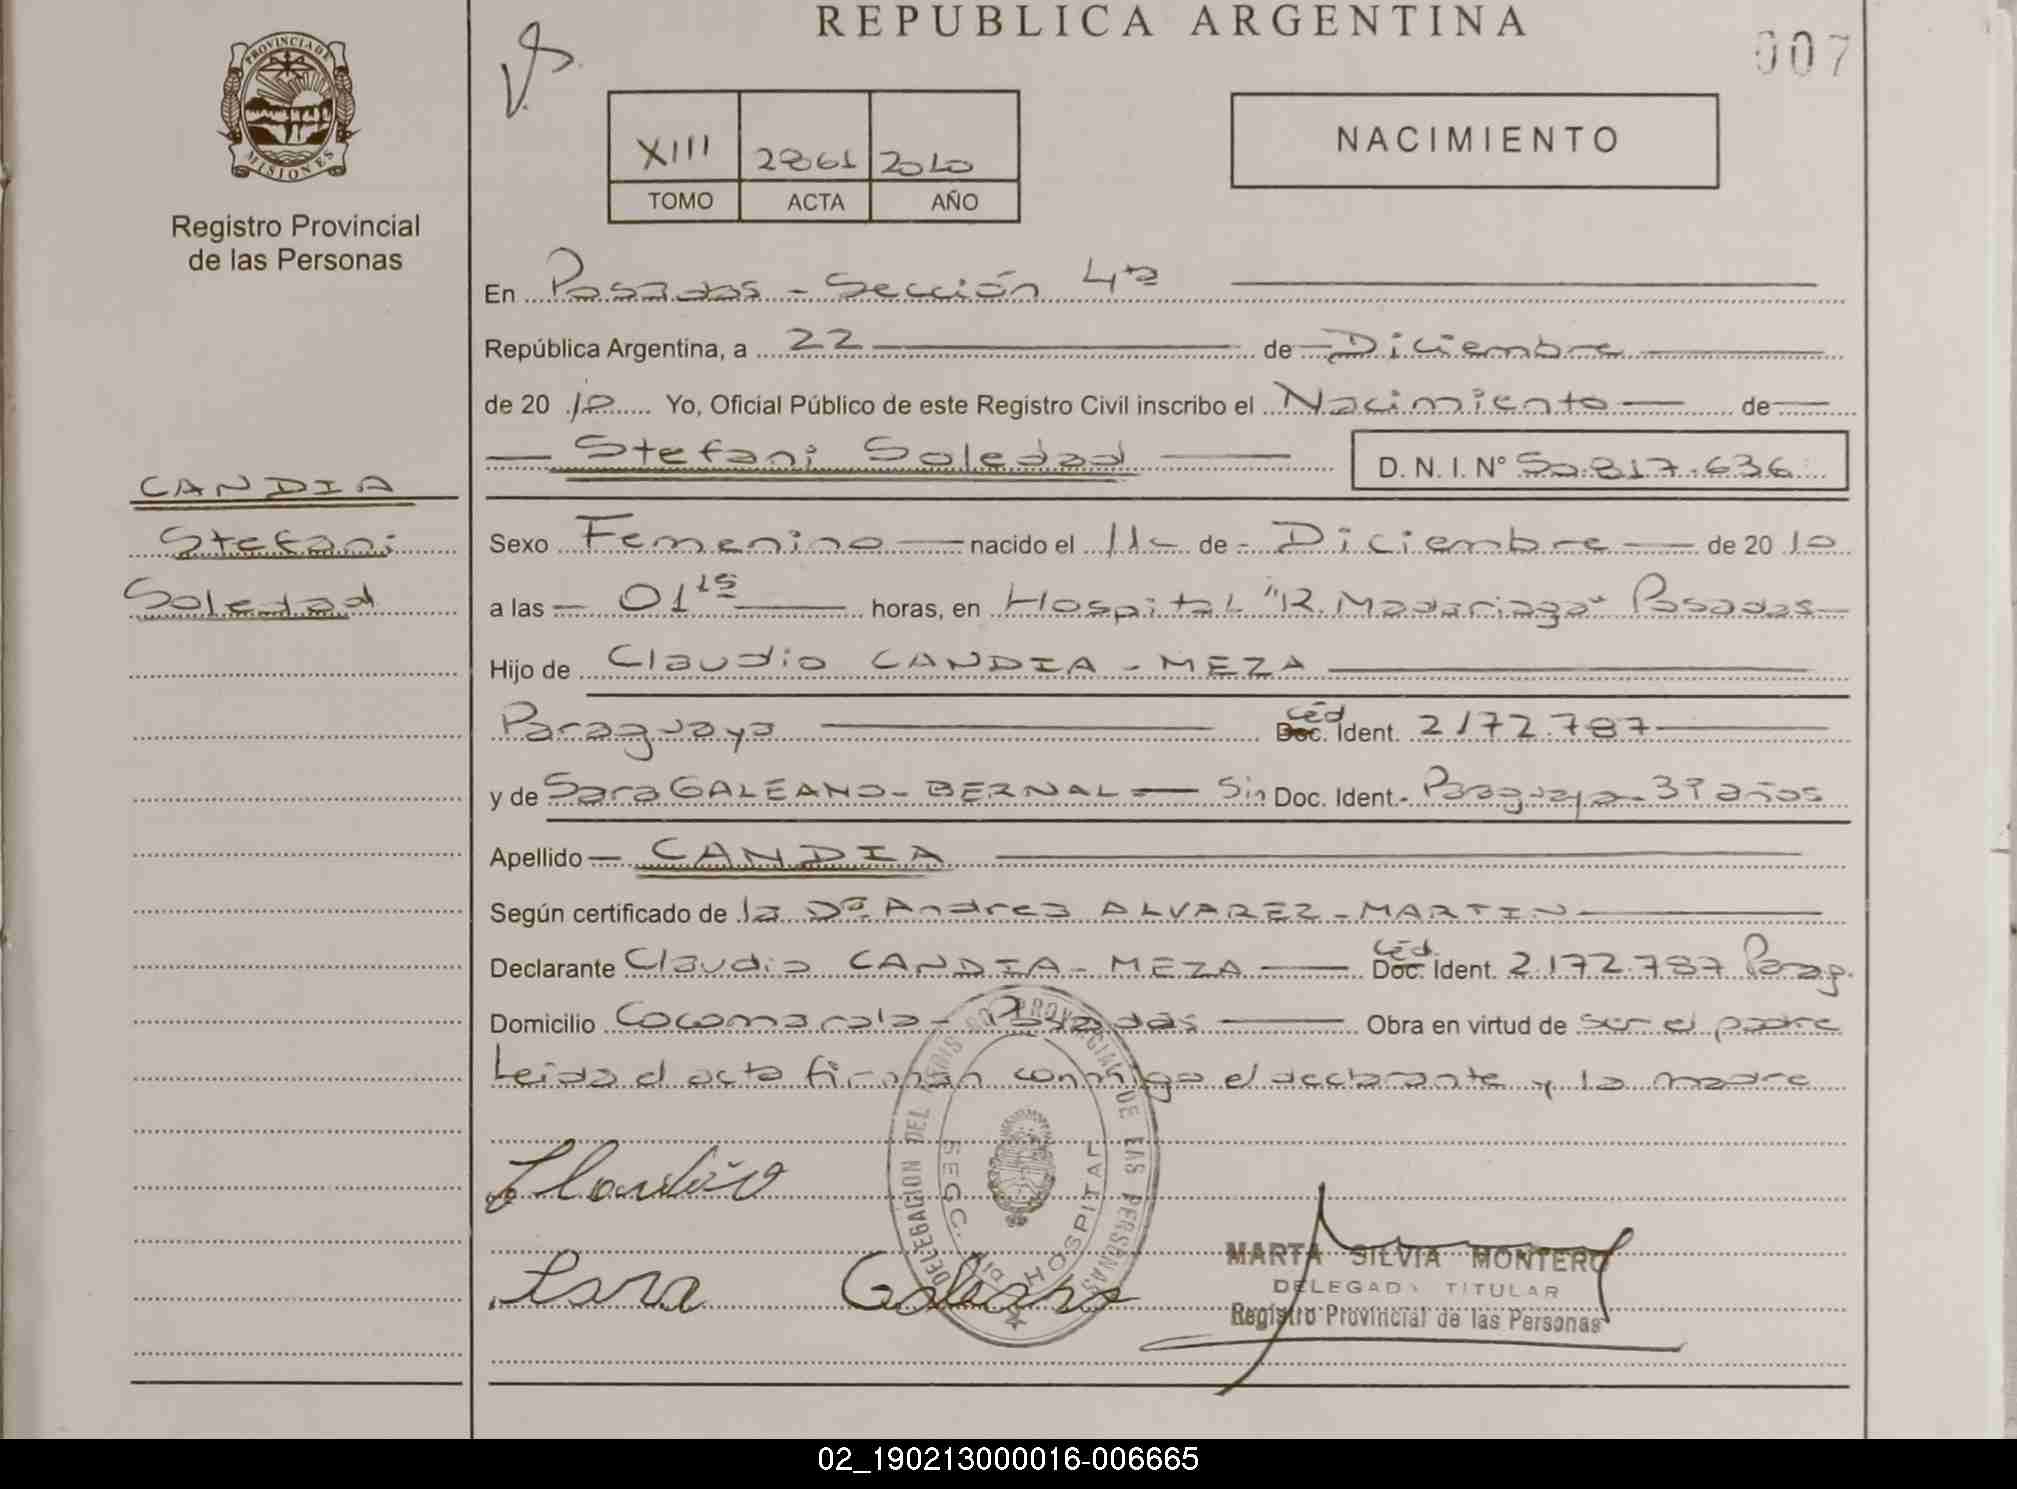 REPUBLICA ARGENTINA
007
PROVINCIA DE
MISIONES
Registro Provincial
de las Personas
XIII 2861 2010
TOMO ACTA AÑO
NACIMIENTO
En Posadas - Sección 4ta
República Argentina, a 22 de Diciembre
de 20 10 Yo, Oficial Público de este Registro Civil inscribo el Nacimiento de
Stefani Soledad D. N. I. N° 50.817.636
CANDIA
Stefani
Soledad
Sexo Femenino nacido el 11 de Diciembre de 20 10
a las 01 15 horas, en Hospital "R. Madariaga" Posadas
Hijo de Claudio CANDIA - MEZA
Paraguaya Céd. Ident. 2172.787
y de Sara GALEANO - BERNAL Sin Doc. Ident. Paraguaya años
Apellido CANDIA
Según certificado de la Dra. Andrea ALVAREZ - MARTIN
Declarante Claudio CANDIA - MEZA Céd. Doc. Ident. 2.172.787 Parag.
Domicilio Cocomarola - Posadas Obra en virtud de ser el padre
Leida el acta firman conmigo el declarante y la madre
DELEGACION DEL REGISTRO PROVINCIAL DE LAS PERSONAS
SECC. HOSPITAL
Claudio
Sara Galeano
MARTA SILVIA MONTERO
DELEGADA TITULAR
Registro Provincial de las Personas
02_190213000016-006665